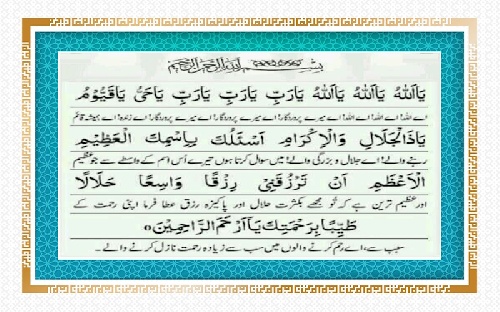 بِسْمِ اللهِ الرَّحْمٰنِ الرَّحِيْمِ
يَااَللهُ يَااَللهُ يَااَللهُ يَارَبِّ يَارَبِّ يَارَبِّ يَاحَيُّ يَاقَيُّوْمُ
اے اللہ اے اللہ اے اللہ اے میرے پروردگار اے میرے پروردگار اے میرے پروردگار اے زندہ اے ہمیشہ قائم
يَاذَالْجَلَالِ وَالْاِكْرَامِ اَسْئَلُكَ بِاِسْمِكَ الْعَظِيْمِ
رہنے والے! اے جلال و بزرگی والے! میں سوال کرتا ہوں تیرے اُس اسم کے واسطے سے جو عظیم
الْاَعْظَمِ اَنْ تَرْزُقَنِيْ رِزْقًا وَاسِعًا حَلَالًا
اور عظیم ترین ہے کہ تو مجھے بکثرت حلال اور پاکیزہ رزق عطا فرما اپنی رحمت کے
طَيِّبًا بِرَحْمَتِكَ يَآاَرْحَمَ الرَّاحِمِيْنَ
سبب سے، اے رحم کرنے والوں میں سب سے زیادہ رحمت نازل کرنے والے۔